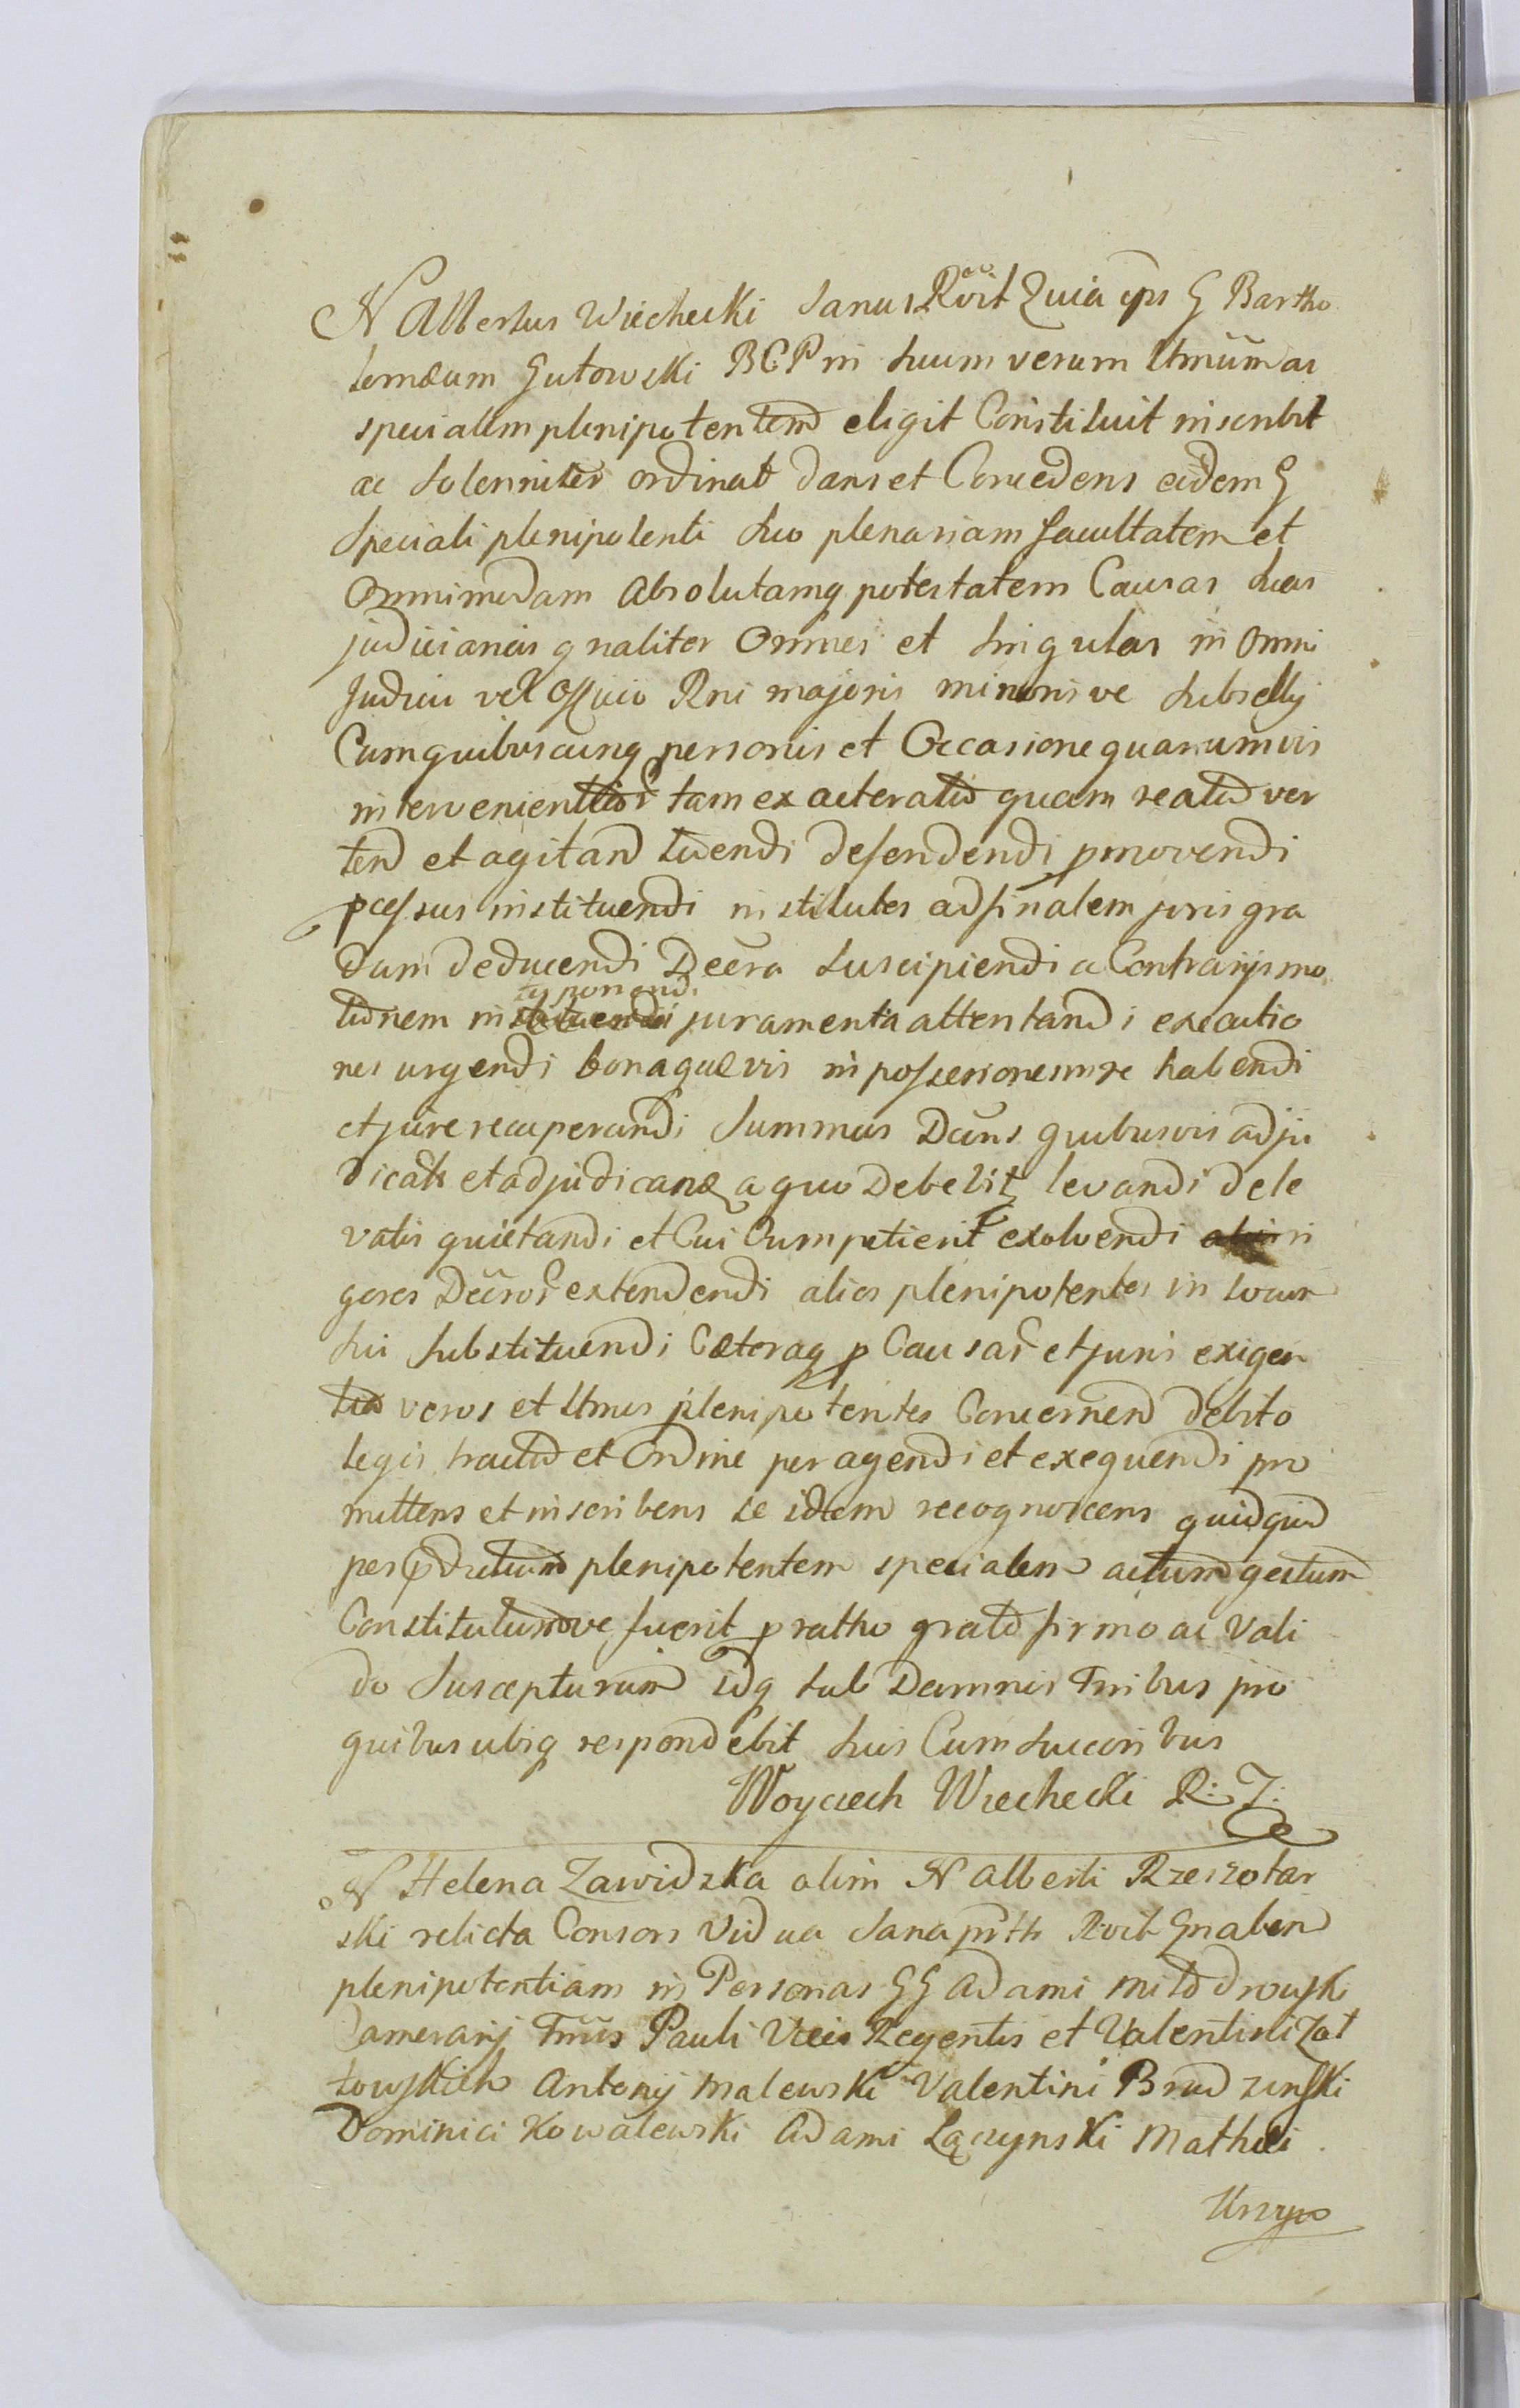 N Albertus Wiechecki Sanus Rvit Quia ips G Bartho
lomæum Gutowski BCP in suum verum ltmum ac
specialem plenipotentem eligit Constituit inscribit
ac Solenniter ordinat dans et Concedens eidem G
Speciali plenipotenti suo plenariam facultatem et
Omnimodam Absolutamq potestatem Causas suas
judiciarias gnaliter Omnes et singulas in Omni
Judicio vel Officio Rni majoris minorisve Subsellij
Cumquibuscunq personis et Occasione quarumvis
intervenient tam ex acteratu quam reatu ver
tend et agitand tuendi defendendi pmovendi
pcessus instituendi institutos ad finalem juris gra
dum deducendi Decra suscipiendi a Contrarijs mo
tionem interponendi juramenta attentandi executio
nes urgendi bona quævis in possessionem se habendi
et jure recuperandi Summas Dcuns quibusvis adju
dicats et adjudicand a quo Debebit levandi de le
vatis quietandi et Cui Cumpetierit exolvendi ri
gores Decror extendendi alios plenipotentes in locum
sui substituendi Cæteraq p Causar et juris exigen
tia veros et ltmos plenipotentes Concernend debito
legis tractu et Ordine peragendi et exequendi pro
mittens et inscribens se idem recognoscens quidquid
per pdictum plenipotentem specialem actum gestum
Constitutumve fuerit p ratho grato firmo ac Vali
do Suscepturum idq sub Damnis Trribus pro
quibus ubiq respondebit suis Cum succoribus
Woyciech Wiechecki R: J:
N Helena Zawidzka olim N Alberti Rzeszotar
ski relicta Consors Vidua Sana prtts Rvit Gnalem
plenipotentiam in Personas GG Adami Młodrowski
Camerarij Trris Pauli Vices Regentis et Valentini Zat
towskich Antonij Malewski Valentini Brudzinski
Dominici Kowalewski Adami Łączynski Mathæi